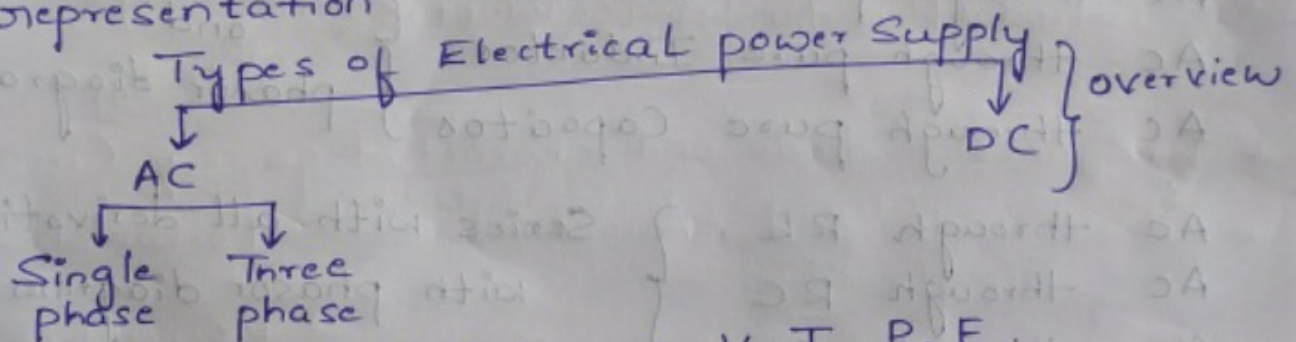 representation
Types of Electrical power Supply } overview
AC
DC
Single phase
Three phase
V I P F